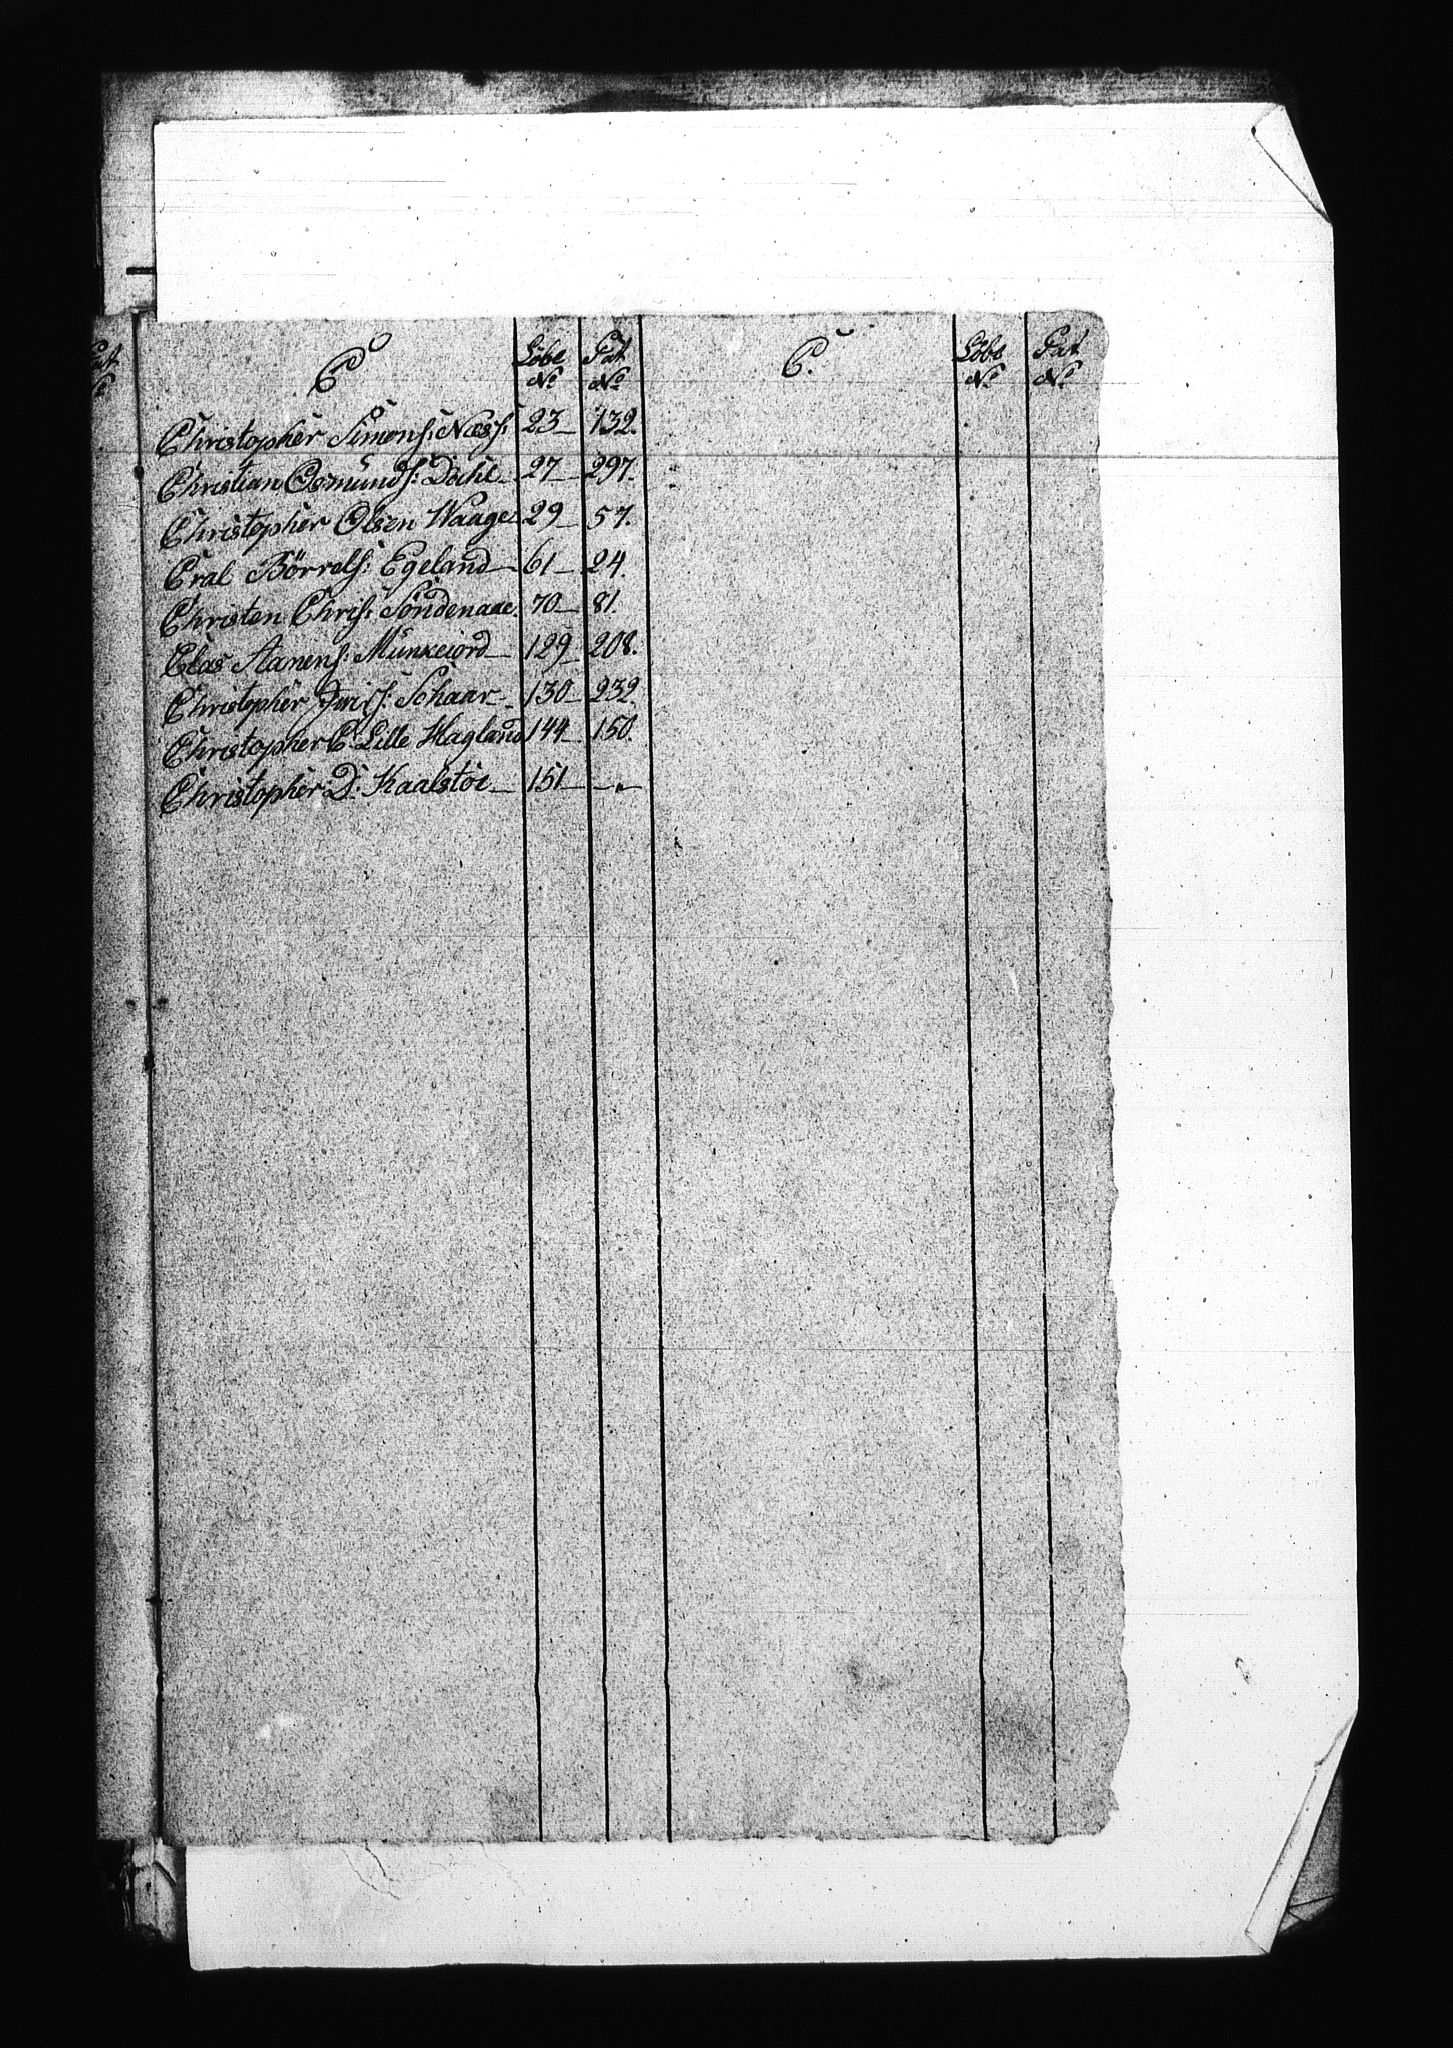 C Löbe Pat C. Löbe Pat
No No No No
Christopher Simons: Næss: 23 132.
Christian Osmunds: Dahl 27 297.
Christopher Olsen Waage 29 57.
Cral Börrels: Egeland 61 24.
Christen Chris: Söndenaae. 70 81.
Clas Aanens: Munkeiord 129 208.
Christopher Schaar 130 232.
Christopher C. Lille Hagland 144 150.
Christopher D. Kaalstöe 151 - " -